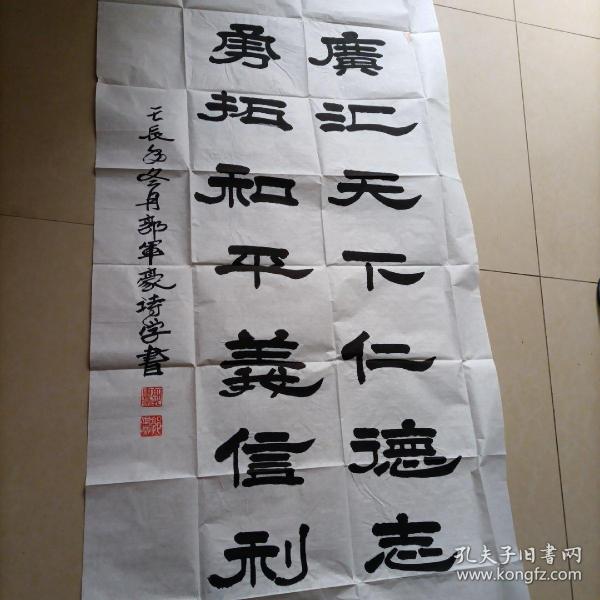 廣汇天下仁德志
勇拓和平義信利
壬辰年冬月郭軍豪诗学書
孔夫子旧书网
www.kongfz.com